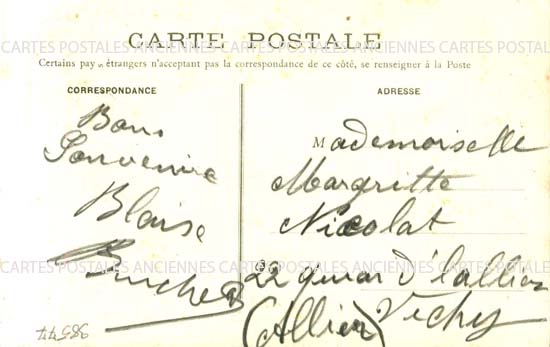 CARTE POSTALE
CARTES POSTALES ANCIENNES CARTES POSTALES ANCIENNES CARTES POSTALES
Certains pays étrangers n'acceptant pas la correspondance de ce côté, se renseigner à la Poste
CORRESPONDANCE
Bons
Souvenirs
Blaise
ADRESSE
Mademoiselle
Margritte
Nicolat
22 quai d'lallier
Vichy
(Allier)
CARTES POSTALES ANCIENNES CARTES POSTALES ANCIENNES CARTES POSTALES
38544